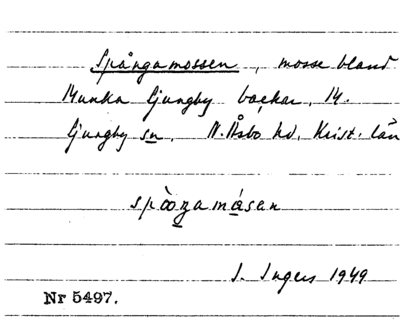 Spångamossen, mosse bland
Munka Ljungby backar, M.
Ljungby sn, N. Åsbo hd, Krist. län
I. Ingers 1949
Nr 5497.